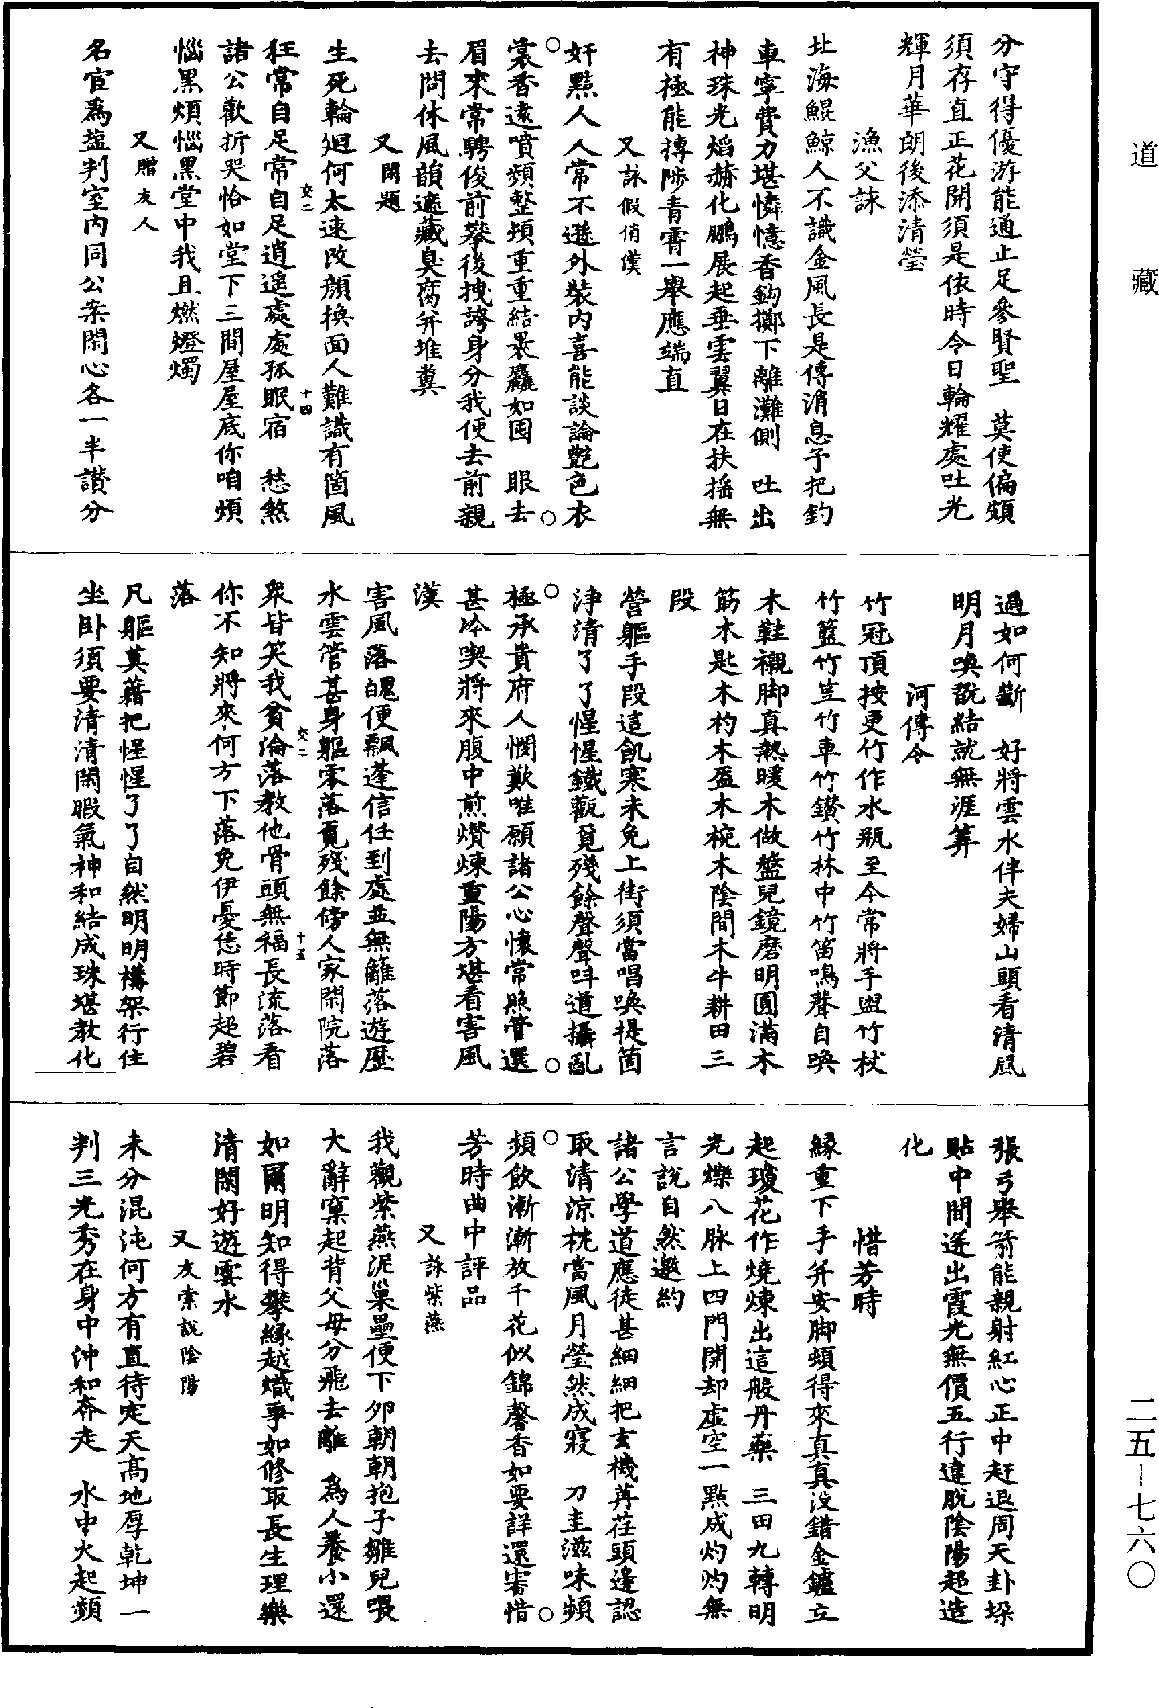 道藏
分守得優游能通止足參賢聖　莫使偏頗
須存直正花開須是依時令日輪耀處吐光
輝月華朗後添清瑩
漁父詠
北海鯤鯨人不識金風長是傳消息予把釣
車寧費力堪憐憶香鈎擲下離灘側　吐出
神珠光焰赫化鵬展起垂雲翼日在扶搖無
有極能摶陟青霄一舉應端直
又詠假俏漢
奸黠人人常不遜外裝內喜能談論艷色衣
裳香遠噴頻整頓重重結裹麤如囤　眼去
眉來常騁俊前攀後拽誇身分我便去前親
去問休風韻遮藏臭腐并堆糞
又閑題
生死輪迴何太速改顏換面人難識有箇風
狂常自足常自足逍遙處處孤眠宿　愁煞
諸公歡折哭恰如堂下三間屋屋底你咱煩
惱黑煩惱黑堂中我且燃燈燭
又贈友人
名宦為䀋判室內同公案閑心各一半讃分
交二
十四
過如何斷　好將雲水伴夫婦山頭看清風
明月喚説結就無涯筭
河傳令
竹冠頂按更竹作水瓶至今常將手盥竹杖
竹籃竹笠竹車竹鑽竹林中竹笛鳴聲自喚
木鞋襯脚真熱暖木做盤兒鏡磨明圓滿木
筋木匙木杓木盔木椀木陰間木牛耕田三
段
營軀手段這飢寒未免上街須當唱喚提箇
淨清了了惺惺鐵觀覓殘餘聲聲呌道攝亂
極承貴府人憫歎唯願諸公心懷常照管選
甚冷喫將來腹中煎爨煉重陽方堪看害風
漢
害風落魄便飄蓬信任到處並無籬落遊歷
水雲管甚身軀零落覓殘餘傍人家閑院落
衆皆笑我貧淪落教他骨頭無福長流落看
你不知將來何方下落免伊憂恁時節起碧
落
凡軀莫藉把惺惺了了自然明明構架行住
坐卧須要清清閑暇氣神和結成珠堪教化
交二
十五
張弓舉箭能親射紅心正中赶退周天卦垜
貼中間迸出霞光無價五行違脫陰陽起造
化
惜芳時
緣重下手并安脚頓得來真真沒錯金鑪立
起瓊花作燒煉出這般丹藥　三田九轉明
光爍八脉上四門開却虛空一點成灼灼無
言說自然邀約
諸公學道應徒甚細細把玄機苒荏頭邊認
取清涼枕當風月瑩然成寢　刀圭滋味頻
頻飲漸漸放千花似錦馨香如要詳還審惜
芳時曲中評品
又詠紫燕
我觀紫燕泥巢壘便下夘朝朝抱子雛兒喂
大辭窠起背父母分飛去離　為人養小還
如爾明知得攀緣越熾爭如修取長生理樂
清閑好遊雲水
又友索説陰陽
未分混沌何方有直待定天高地厚乾坤一
判三光秀在身中沖和奔走　水中火起頻
二五—七六〇